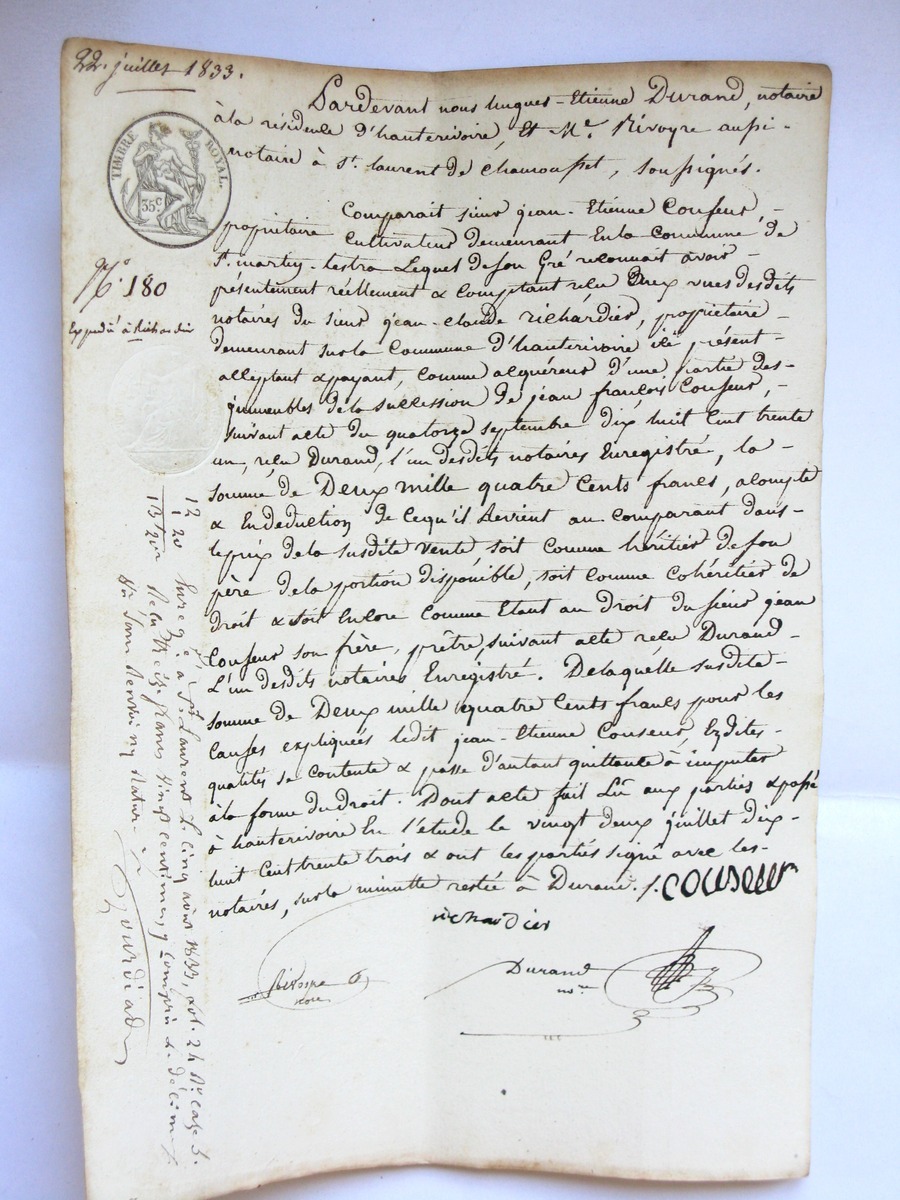 22. juillet 1833.
Pardevant nous hugues-Etienne Durand, notaire
à la résidence d'hauterivoire, Et Me. Rivoyre aussi
notaire à St. laurent de chamousset, soussignés.
TIMBRE ROYAL.
35c
Comparait sieur jean-Etienne Couseur,
propriétaire cultivateur demeurant En la commune de
St. martin-lestra Lequel de son Gré reconnait avoir
No. 180
présentement réellement & comptant reçu Deux vues desdits
notaires du sieur jean-claude richardier, propriétaire
Expédié à Richardier
demeurant sur la commune d'hauterivoire ici présent
acceptant & payant, comme acquéreur d'une partie des
immeubles de la succession de jean françois Couseur,
suivant acte du quatorze septembre dix huit cent trente
un, reçu Durand, l'un desdits notaires Enregistré, la
somme de Deux mille quatre cents francs, acompte
& En deduction de ce qu'il Revient au comparant dans
le prix de la susdite vente soit comme héritier de son
père de la portion disponible, soit comme cohéritier de
droit & soit Encore comme Etant au droit du sieur jean
Couseur son frère, prêtre, suivant acte reçu Durand
L'un desdits notaires Enregistré. De laquelle susdite
somme de Deux mille quatre cents francs pour les
causes expliquées ledit jean-Etienne Couseur, Esdites
qualités se contente & passe d'autant quittance à imputer
à la forme du droit. Dont acte fait Lu aux parties & passé
à hauterivoire En l'étude le vingt deux juillet dix
huit cent trente trois & ont les parties signé avec les
notaires, sur la minutte restée à Durand.
couseur
richardier
Rivoyre
nore
Durand
nore
12
1 20
13 20
Enregé à St Laurent le cinq août 1833, vol. 24 case 5.
Reçu treize francs vingt centimes, y compris le décime